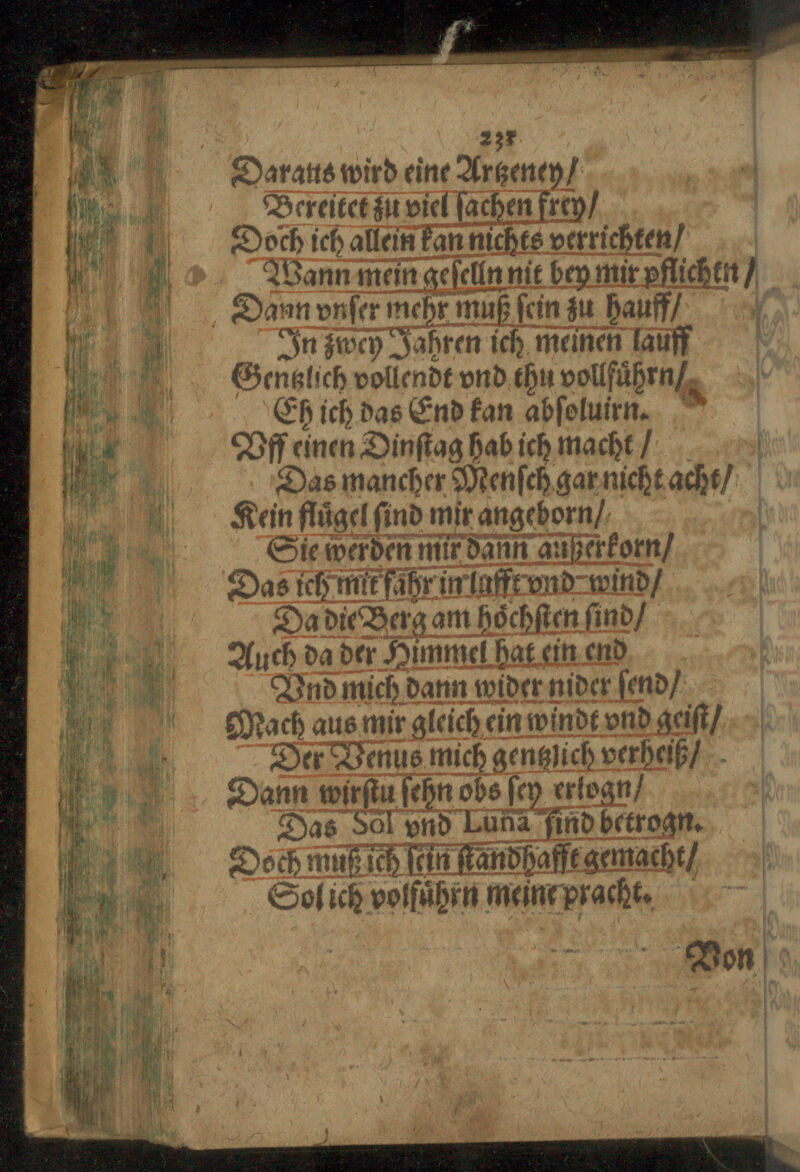 238
Daraus wird eine Artzeney /
Bereitet zu viel ſachen frey /
Doch ich allein kan nichts verrichten /
Wann mein geſelln nit bey mir pflichten /
Dann vnſer mehr muß ſein zu hauff /
In zwey Jahren ich meinen lauff
Gentzlich vollendt vnd thu vollfuͤhrn /
Eh ich das End kan abſoluirn.
Vff einen Dinſtag hab ich macht /
Das mancher Menſch gar nicht acht /
Kein fluͤgel ſind mir angeborn /
Sie werden mir dann außerkorn /
Das ich mit fahr in lufft vnd wind /
Da die Berg am hoͤchſten ſind /
Auch da der Himmel hat ein end
Vnd mich dann wider nider ſend /
Mach aus mir gleich ein windt vnd geiſt /
Der Venus mich gentzlich verheiß /
Dann wirſtu ſehn obs ſey erlogn /
Das Sol vnd Luna ſind betrogn.
Doch muß ich ſein ſtandhafft gemacht /
Sol ich volfuͤhrn meine pracht.
Von